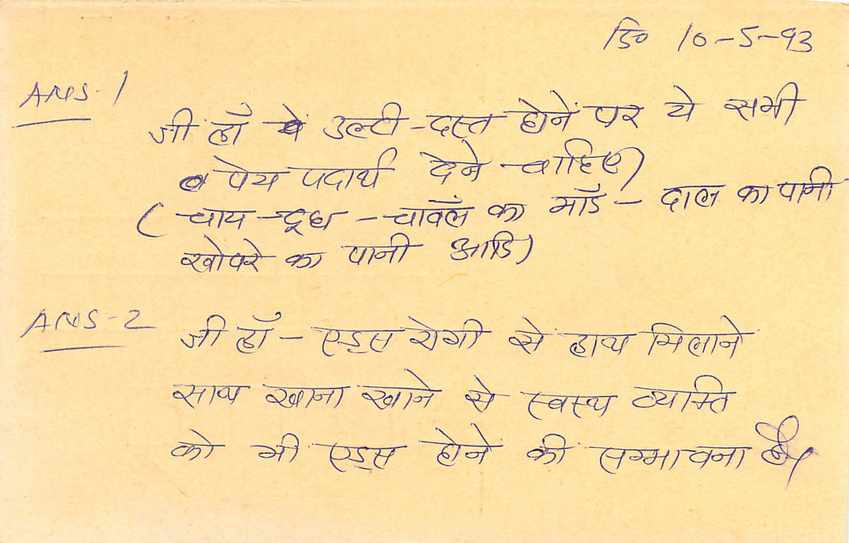 दि० 10-5-93
ANS-1
जी हाँ उल्टी-दस्त होनें पर ये सभी
पेय पदार्थ देने चाहिए)
(चाय-दूध-चावँल का माँड-दाल का पानी
खोपरे का पानी आदि)
ANS-2 जी हाँ-एड्स रोगी से हाथ मिलाने
साथ खाना खाने से स्वस्थ व्यक्ति
को भी एड्स होने की सम्भावना है।